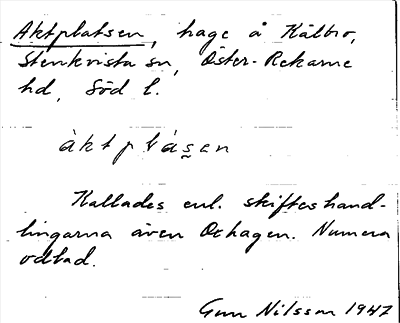 Aktplatsen, hage å Kälbro,
Stenkvista sn, Öster-Rekarne
hd, Söd l.
àktplásen
Kallades enl. skifteshand-
lingarna även Oxhagen. Numera
odlad.
Gun Nilsson 1947